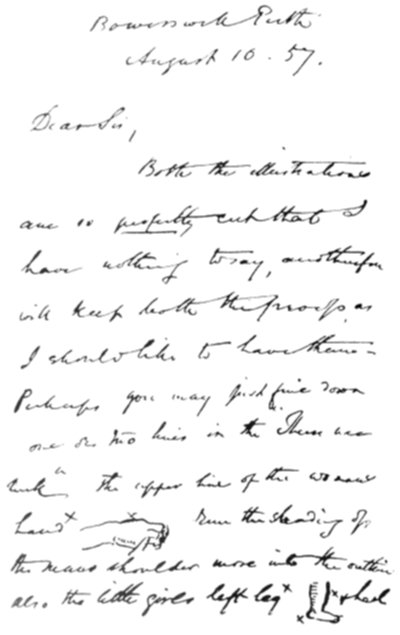 Bowerswell Perth
August 10. 57.
Dear Sir,
Both the illustrations
are so perfectly cut that I
have nothing to say, and therefore
will keep both the proofs as
I should like to have them -
Perhaps you may just fine down
one or two lines in the "There was
luck" the upper line of the womans
hand x x run the shading of
the mans shoulder more into the outline
also the little girls left leg x x x heel